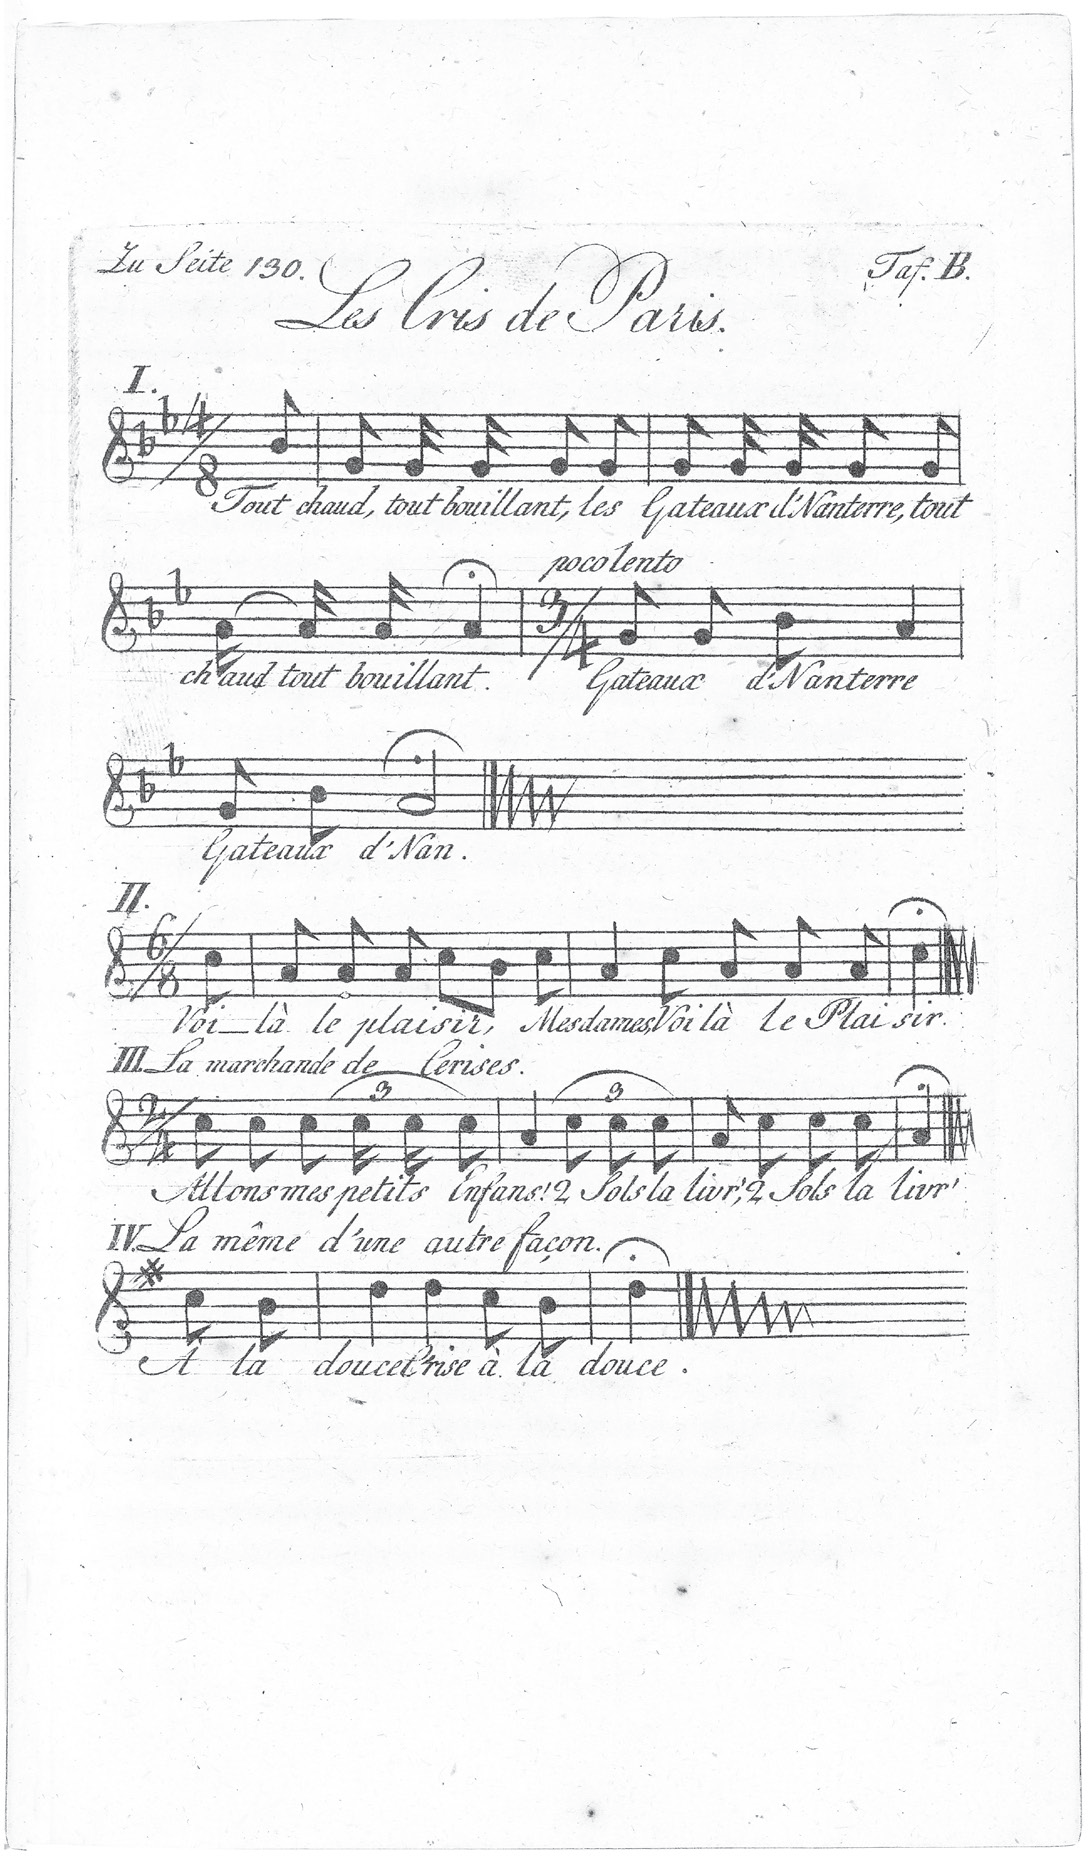 Zu Seite 130.
Taf. B.
Les Cris de Paris.
I.
4/8
Tout chaud, tout bouillant, les Gateaux d'Nanterre, tout
poco lento
3/4
chaud tout bouillant. Gateaux d'Nanterre
Gateaux d'Nan.
II.
6/8
Voi_là le plaisir, Mesdames, Voi là le Plai sir.
III. La marchande de Cerises.
3 3
2/4
Allons mes petits Enfans! 2 Sols la livr', 2 Sols la livr'
IV. La même d'une autre façon.
A la douce C'rise à la douce.